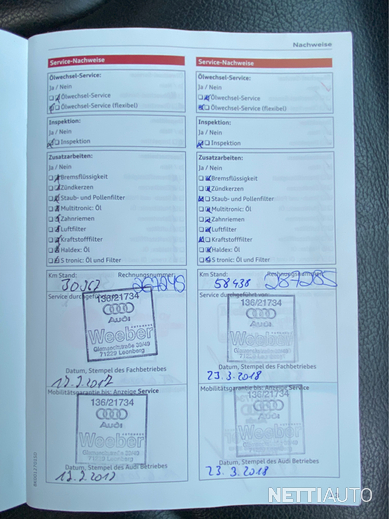 Nachweise
Service-Nachweise
Ölwechsel-Service:
Ja / Nein
Ölwechsel-Service
Ölwechsel-Service (flexibel)
Inspektion:
Ja / Nein
Inspektion
Zusatzarbeiten:
Ja / Nein
Bremsflüssigkeit
Zündkerzen
Staub- und Pollenfilter
Multitronic: Öl
Zahnriemen
Luftfilter
Kraftstofffilter
Haldex: Öl
S tronic: Öl und Filter
Km Stand: Rechnungsnummer:
Service durchgeführt von:
136/21734
Audi
Weeber
Glemseckstraße 39/49
71229 Leonberg
Datum, Stempel des Fachbetriebes
17.2.2017
Mobilitätsgarantie bis: Anzeige Service
136/21734
Audi
Weeber
71229 Leonberg
Datum, Stempel des Audi Betriebes
17.2.2017
Service-Nachweise
Ölwechsel-Service:
Ja / Nein
Ölwechsel-Service
Ölwechsel-Service (flexibel)
Inspektion:
Ja / Nein
Inspektion
Zusatzarbeiten:
Ja / Nein
Bremsflüssigkeit
Zündkerzen
Staub- und Pollenfilter
Multitronic: Öl
Zahnriemen
Luftfilter
Kraftstofffilter
Haldex: Öl
S tronic: Öl und Filter
Km Stand: Rechnungsnummer:
58438
Service durchgeführt von:
136/21734
Audi
Weeber
71229 Leonberg
Datum, Stempel des Fachbetriebes
23.3.2018
Mobilitätsgarantie bis: Anzeige Service
136/21734
Audi
Weeber
71229 Leonberg
Datum, Stempel des Audi Betriebes
23.3.2018
NETTIAUTO